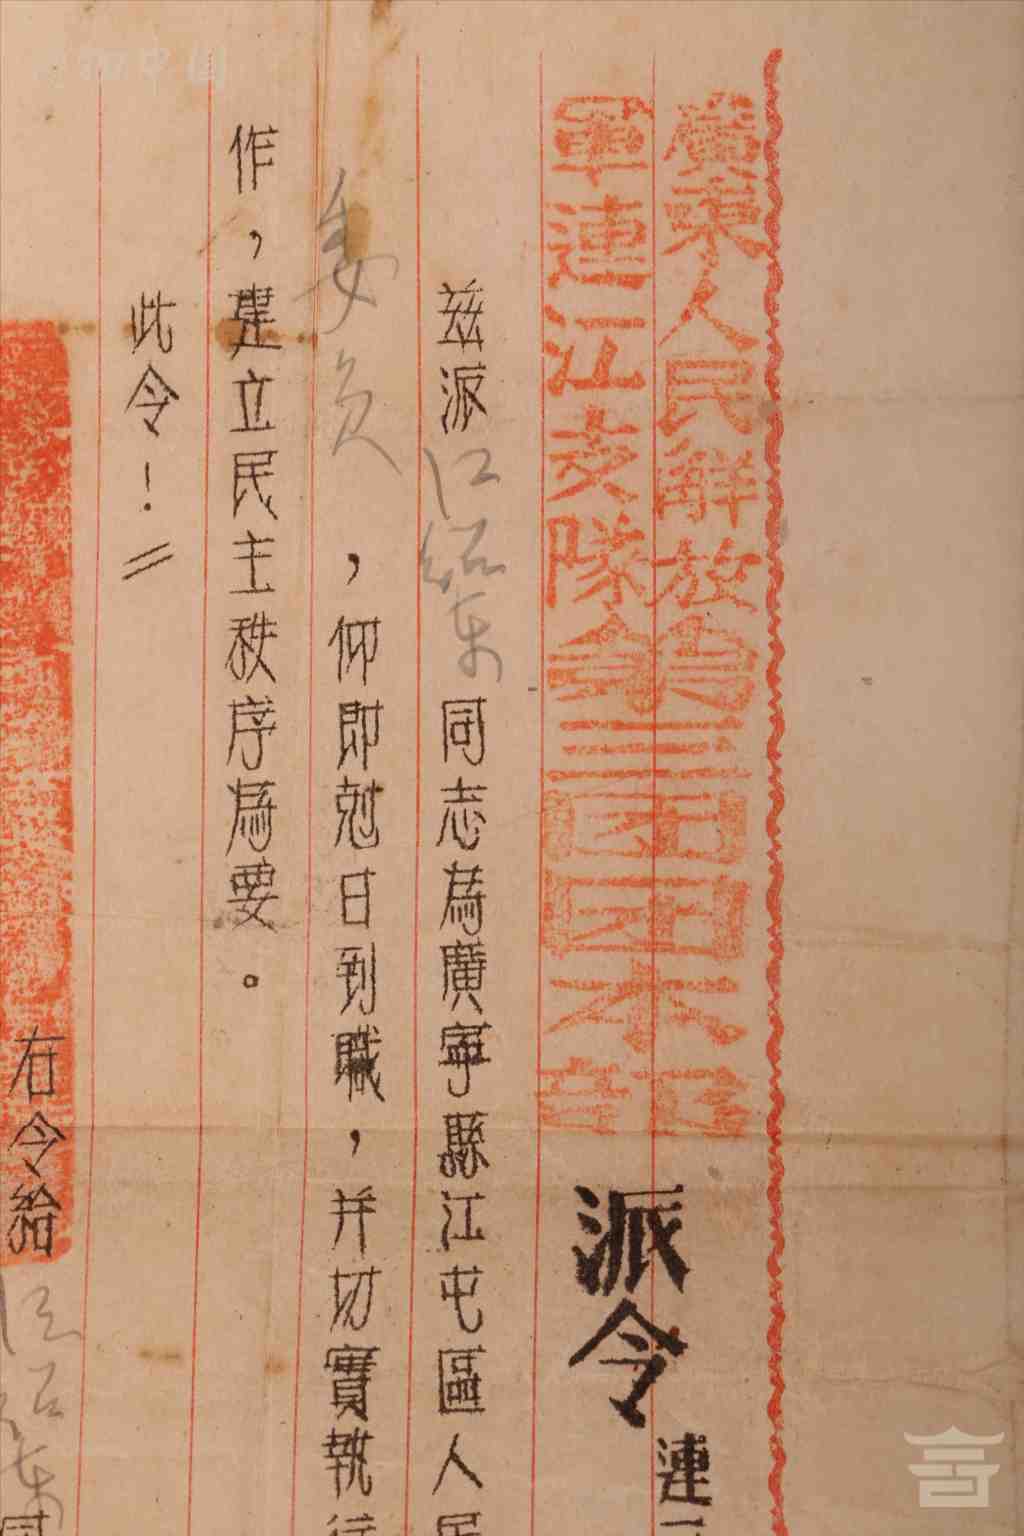 廣東人民解放
軍連江支隊
第三團團本部
派令
連
茲派江紹東同志為廣寧縣江屯區人民
委員，仰即尅日到職，并切實執行
作，建立民主秩序為要。
此令！
右令給
江紹東同